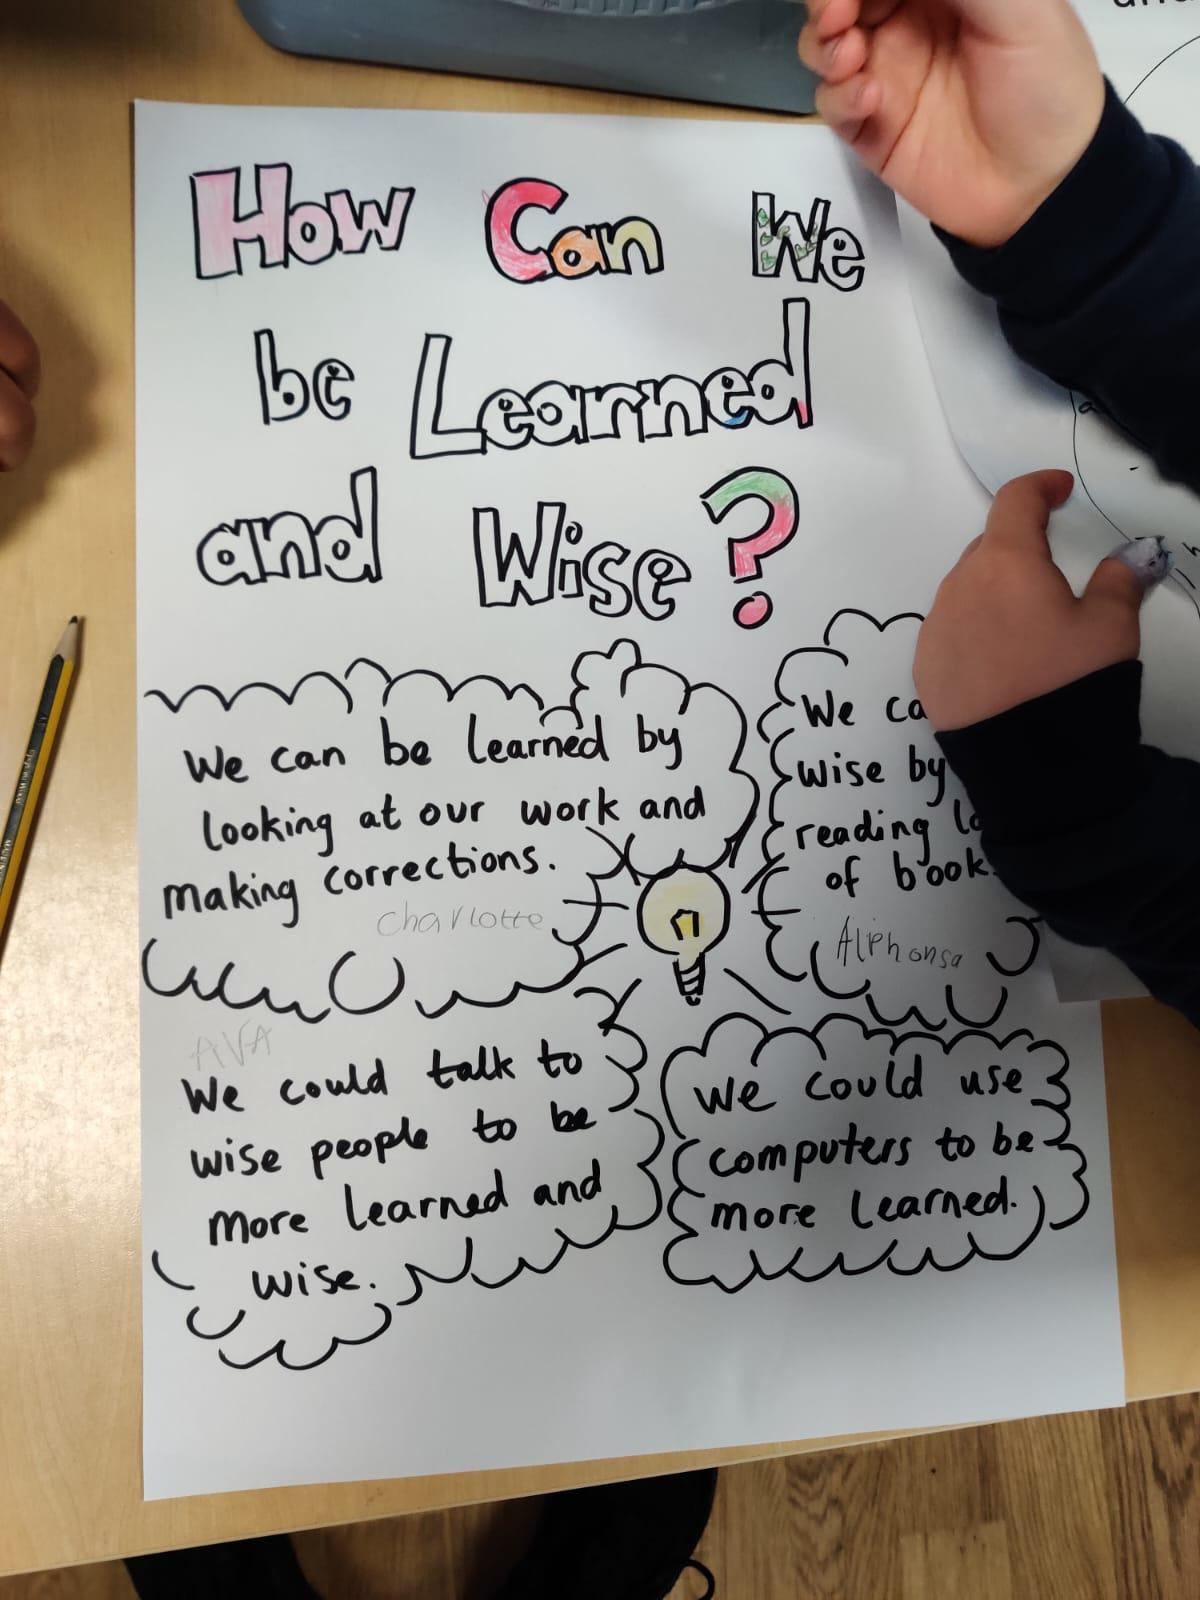 How Can We
be Learned
and Wise?
We can be learned by
looking at our work and
making corrections.
Charlotte
We
wise by
reading
of book
Alphonsa
AVA
We could talk to
wise people to be
more learned and
wise.
We could use
computers to be
more learned.